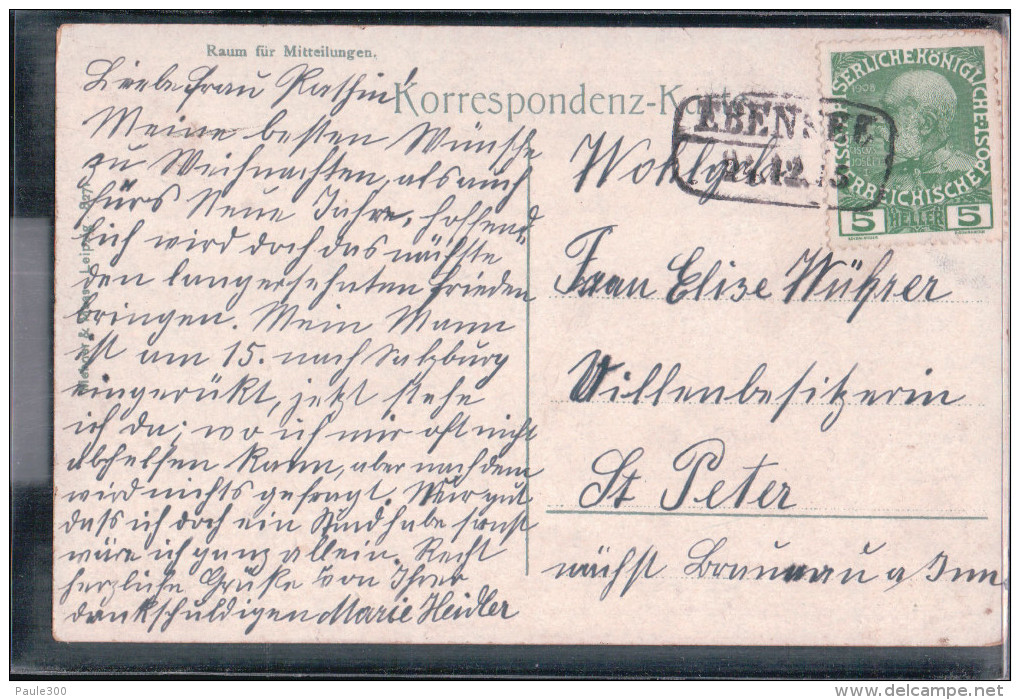 Raum für Mitteilungen.
Liebe Frau Kathin!
Meine besten Wünsche
zu Weihnachten, als auch
fürs Neue Jahr, hoffend
lich wird doch das nächste
den langersehnten Frieden
bringen. Mein Mann
ist am 15. nach Salzburg
eingerükt, jetzt stehe
ich da; wo ich mir oft nicht
abhelfen kann, aber nach dem
wird nichts gefragt. Nur gut
dass ich doch ein Kind habe sonst
wäre ich ganz allein. Recht
herzliche Grüße von Ihrer
dankschuldigen Marie Heidler
Korrespondenz-Karte
EBENSEE
KAISERLICHE KÖNIGLICHE ÖSTERREICHISCHE POST
1908
5 HELLER 5
Wohlgeb.
Frau Elise Wührer
Villenbesitzerin
St Peter
nächst Braunau a Inn
Paule300